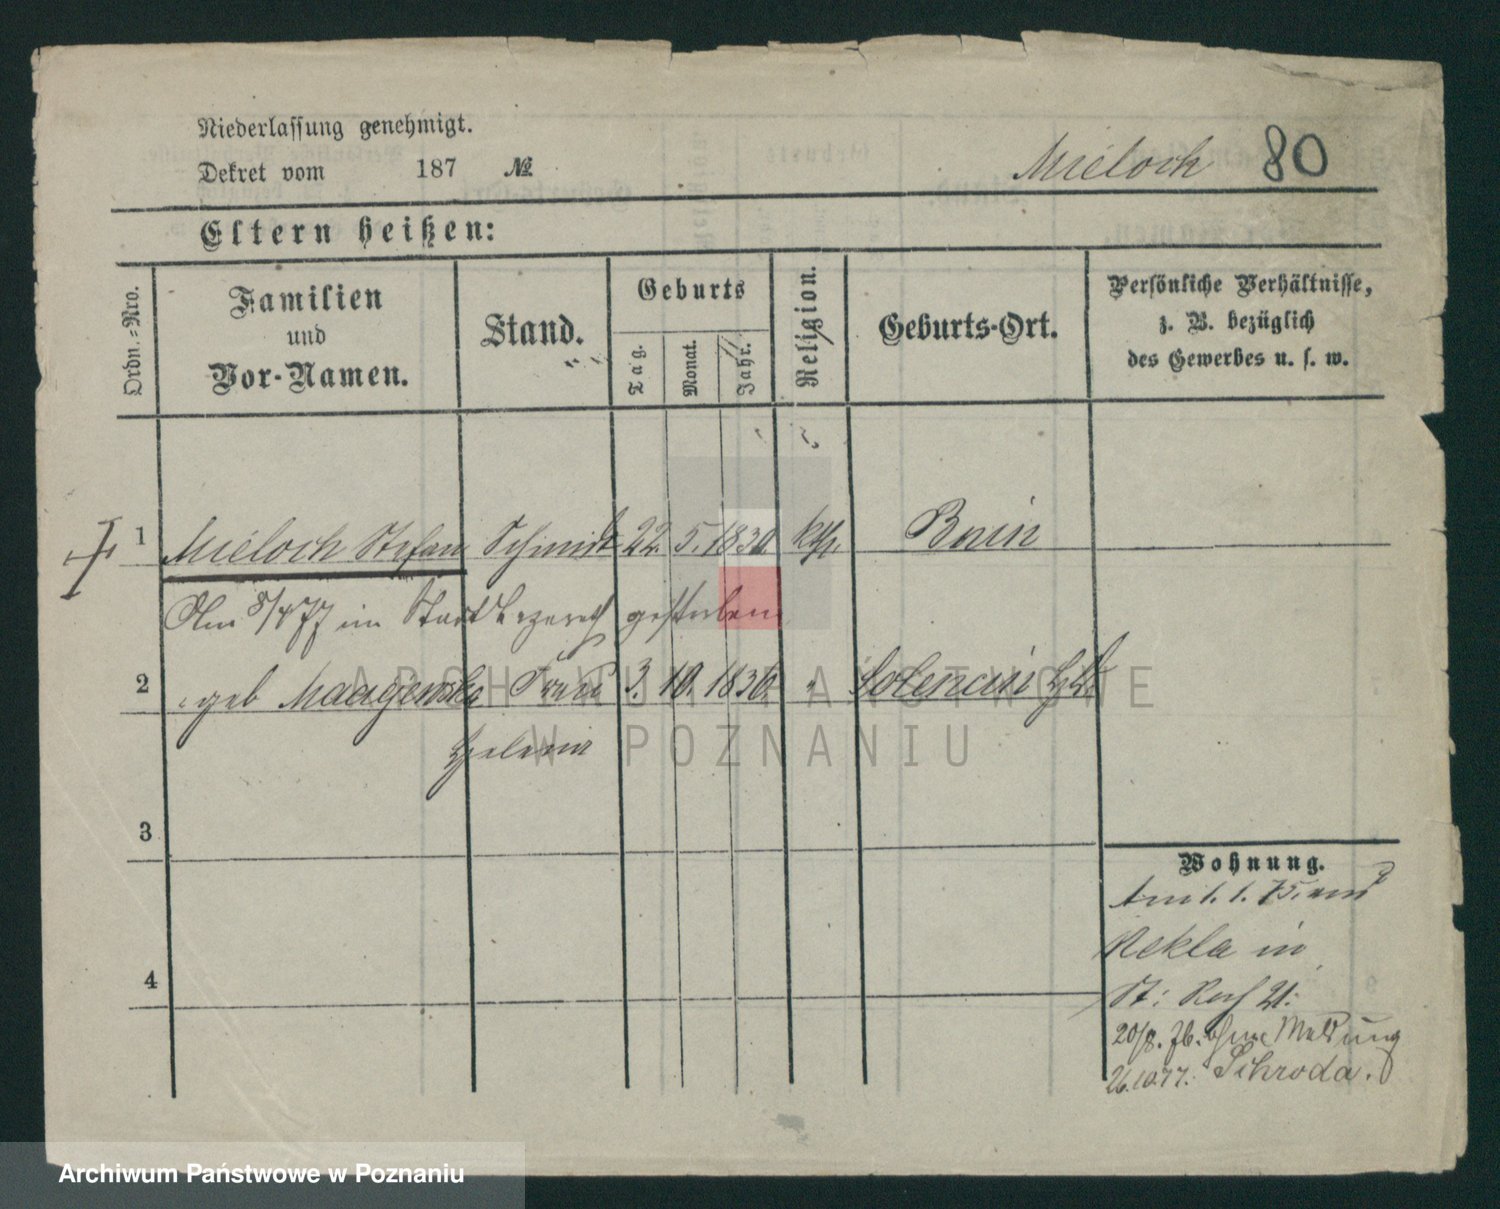 Niederlassung genehmigt.
Dekret vom 187 №
Mieloch 80
Eltern heißen:
Ordn.-Nro.
Familien und Vor-Namen.
Stand.
Geburts
Tag.
Monat.
Jahr.
Religion.
Geburts-Ort.
Persönliche Verhältnisse,
z. B. bezüglich
des Gewerbes u. s. w.
1 Mieloch Stefan Schmidt 22. 5. 1830. kth. Bnin
Am 8/4 77 im Stadt Lazareth gestorben
2 geb Frau 3. 10. 1836. "
Helena
3
4
Wohnung.
Am 1. 1. 75. aus
Rekla in
St: Roch 21.
20/8. 76. ohne Meldung
26.10 77. Schroda.
ARCHIWUM PAŃSTWOWE
W POZNANIU
Archiwum Państwowe w Poznaniu